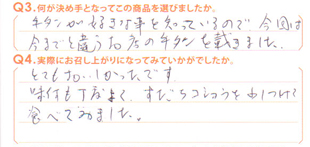 Q3.何が決め手となってこの商品を選びましたか。
牛タンが好きな事を知っているので今回は
今までと違うお店の牛タンを戴きました。
Q4.実際にお召し上がりになってみていかがでしたか。
とてもおいしかったです
味付も丁度よく、すだちコショウを少しつけて
食べてみました。